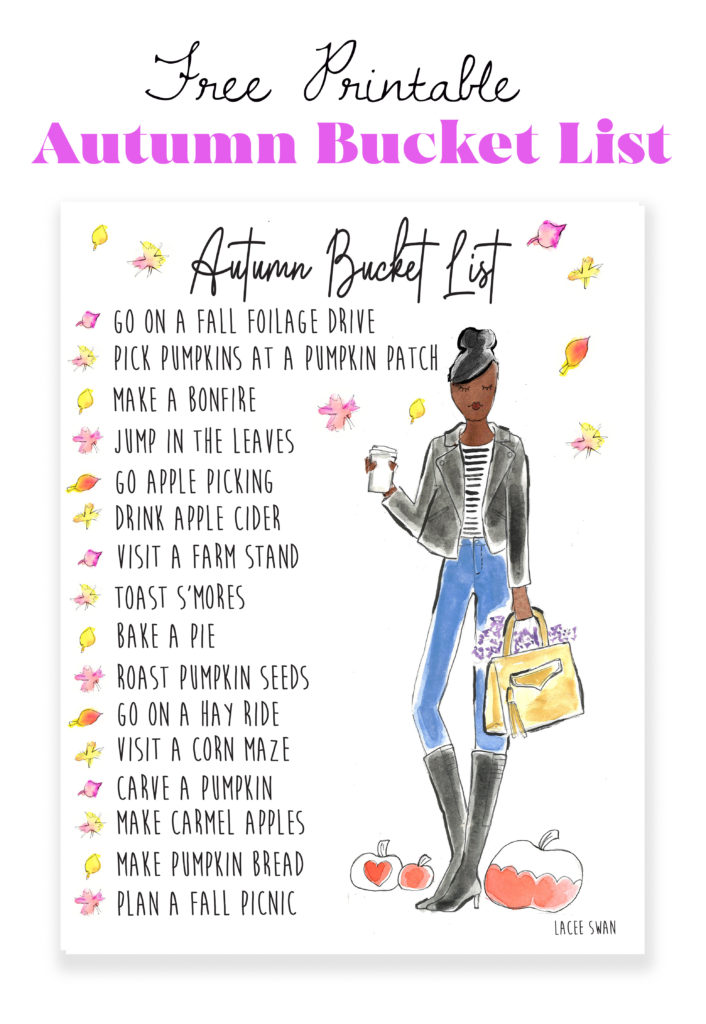 Free Printable
Autumn Bucket List
Autumn Bucket List
GO ON A FALL FOILAGE DRIVE
PICK PUMPKINS AT A PUMPKIN PATCH
MAKE A BONFIRE
JUMP IN THE LEAVES
GO APPLE PICKING
DRINK APPLE CIDER
VISIT A FARM STAND
TOAST S'MORES
BAKE A PIE
ROAST PUMPKIN SEEDS
GO ON A HAY RIDE
VISIT A CORN MAZE
CARVE A PUMPKIN
MAKE CARMEL APPLES
MAKE PUMPKIN BREAD
PLAN A FALL PICNIC
LACEE SWAN